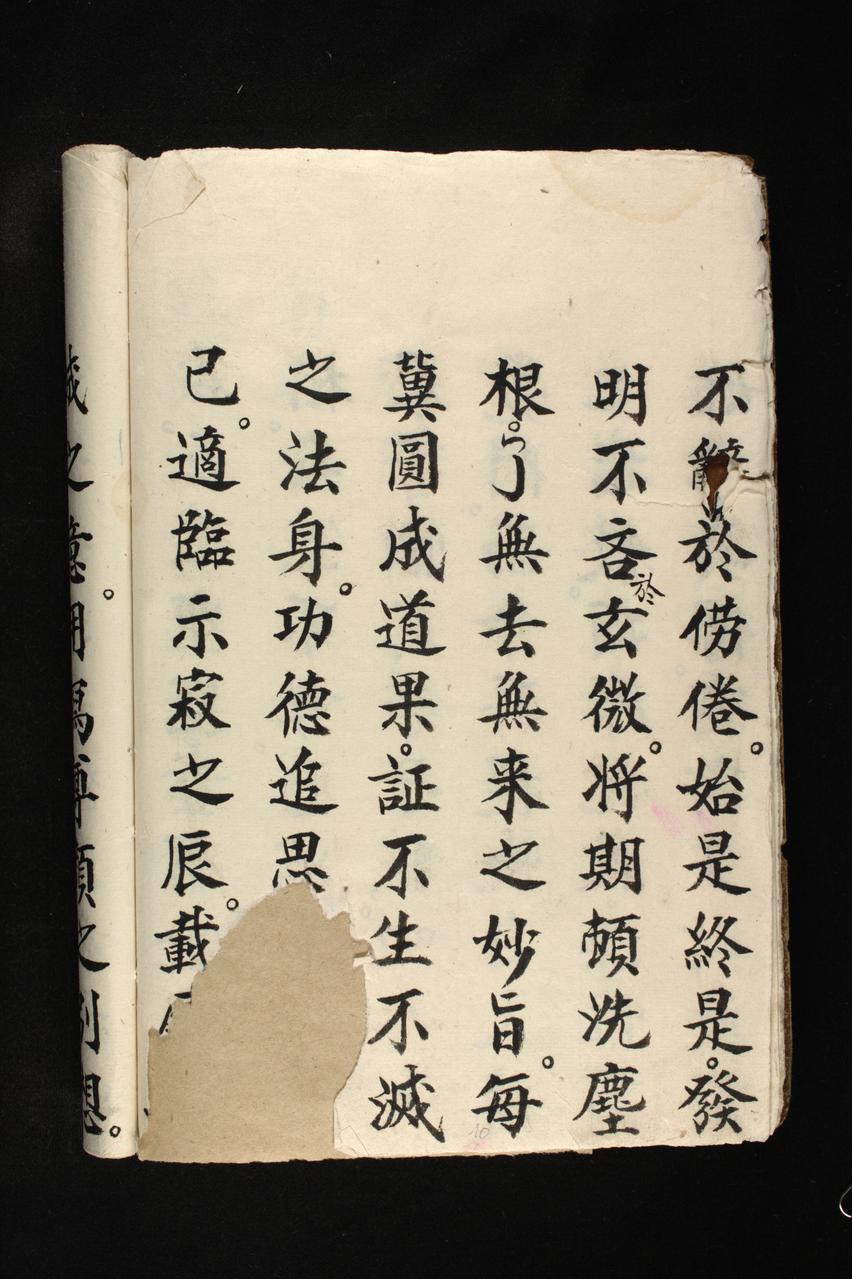 不辭於僗倦。始是終是。發
明不吝於玄微。将期頓洗塵
根。了無去無来之妙旨。每
冀圓成道果。証不生不滅
之法身。功德追思
已。適臨示寂之辰。載